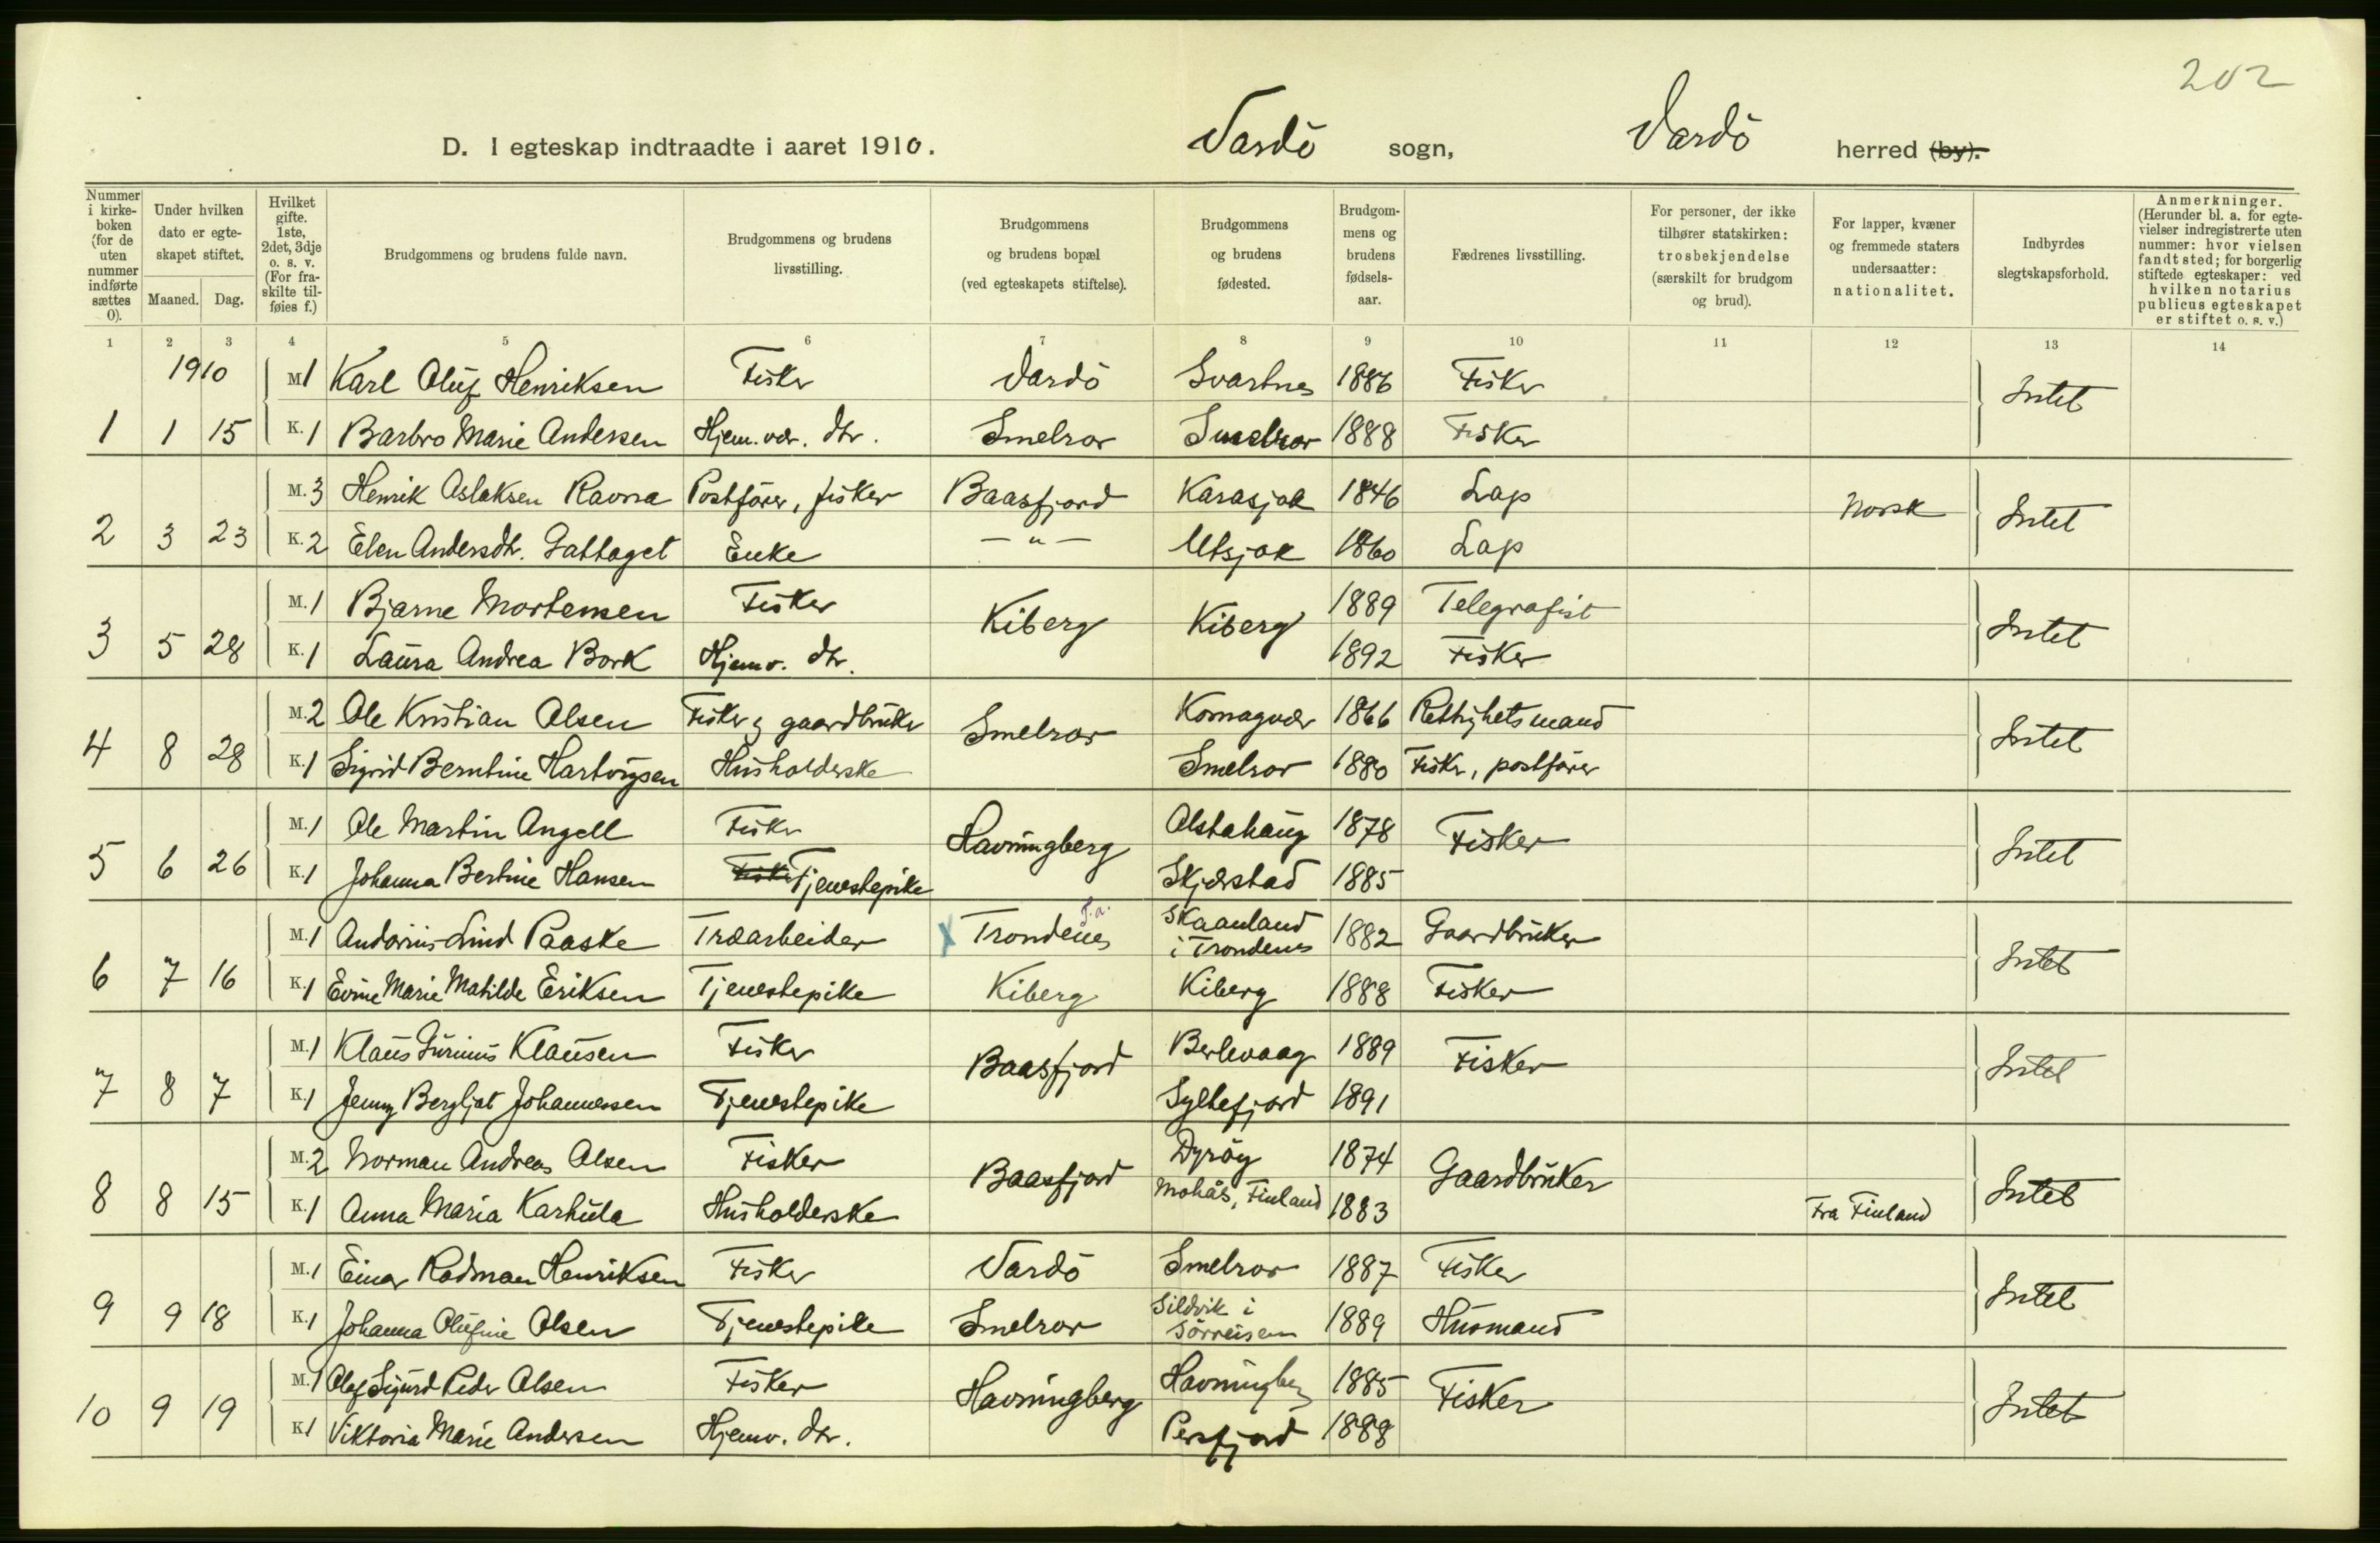 202
D. I egteskap indtraadte i aaret 1910. Vardö sogn, Vardö herred (by).
Nummer i kirke-boken (for de uten nummer indførte sættes 0).
Under hvilken dato er egte-skapet stiftet.
Maaned. Dag.
Hvilket gifte. 1ste, 2det, 3dje o. s. v. (For fra-skilte til-føies f.)
Brudgommens og brudens fulde navn.
Brudgommens og brudens livsstilling.
Brudgommens og brudens bopæl (ved egteskapets stiftelse).
Brudgommens og brudens fødested.
Brudgom-mens og brudens fødsels-aar.
Fædrenes livsstilling.
For personer, der ikke tilhører statskirken: trosbekjendelse (særskilt for brudgom og brud).
For lapper, kvæner og fremmede staters undersaatter: nationalitet.
Indbyrdes slegtskapsforhold.
Anmerkninger. (Herunder bl. a. for egte-vielser indregistrerte uten nummer: hvor vielsen fandt sted; for borgerlig stiftede egteskaper: ved hvilken notarius publicus egteskapet er stiftet o. s. v.)
1 2 3 4 5 6 7 8 9 10 11 12 13 14
1910 M 1 Karl Oluf Henriksen Fisker Vardö Svartnes 1886 Fisker Intet
1 1 15 K. 1 Barbro Marie Andersen Hjem.vær. dtr. Smelror Smelror 1888 Fisker
M. 3 Henrik Aslaksen Ravna Postförer, fisker Baasfjord Karasjok 1846 Lap Norsk Intet
2 3 23 K. 2 Elen Andersdtr. Gattaget Enke — " — Utsjok 1860 Lap
M. 1 Bjarne Mortensen Fisker Kiberg Kiberg 1889 Telegrafist Intet
3 5 28 K. 1 Laura Andrea Bork Hjemv. dtr. 1892 Fisker
M. 2 Ole Kristian Olsen Fisker & gaardbruker Smelror Komagvær 1866 Rettighetsmand Intet
4 8 28 K. 1 Sigrid Berntine Hartvigsen Husholderske Smelror 1880 Fisker, postförer
M. 1 Ole Martin Angell Fisker Havningberg Alstahaug 1878 Fisker Intet
5 6 26 K. 1 Johanna Bertine Hansen Fisker Tjenestepike Skjerstad 1885
M. 1 Andorius Lind Paaske Træarbeider X Trondenes T.a. Skaanland i Trondenes 1882 Gaardbruker Intet
6 7 16 K. 1 Evine Marie Matilde Eriksen Tjenestepike Kiberg Kiberg 1888 Fisker
M. 1 Klaus Jurinus Klausen Fisker Baasfjord Berlevaag 1889 Fisker Intet
7 8 7 K. 1 Jenny Bergljot Johannessen Tjenestepike Syltefjord 1891
M. 2 Norman Andreas Olsen Fisker Baasfjord Dyröy 1874 Gaardbruker Intet
8 8 15 K. 1 Anna Maria Karhula Husholderske Mohås, Finland 1883 Fra Finland
M. 1 Einar Rodman Henriksen Fisker Vardö Smelror 1887 Fisker Intet
9 9 18 K. 1 Johanna Olufine Olsen Tjenestepike Smelror Sildvik i Sörreisen 1889 Husmand
M. 1 Olaf Sigurd Peder Olsen Fisker Havningberg Havningberg 1885 Fisker Intet
10 9 19 K 1 Viktoria Marie Andersen Hjemv. dtr. Persfjord 1888